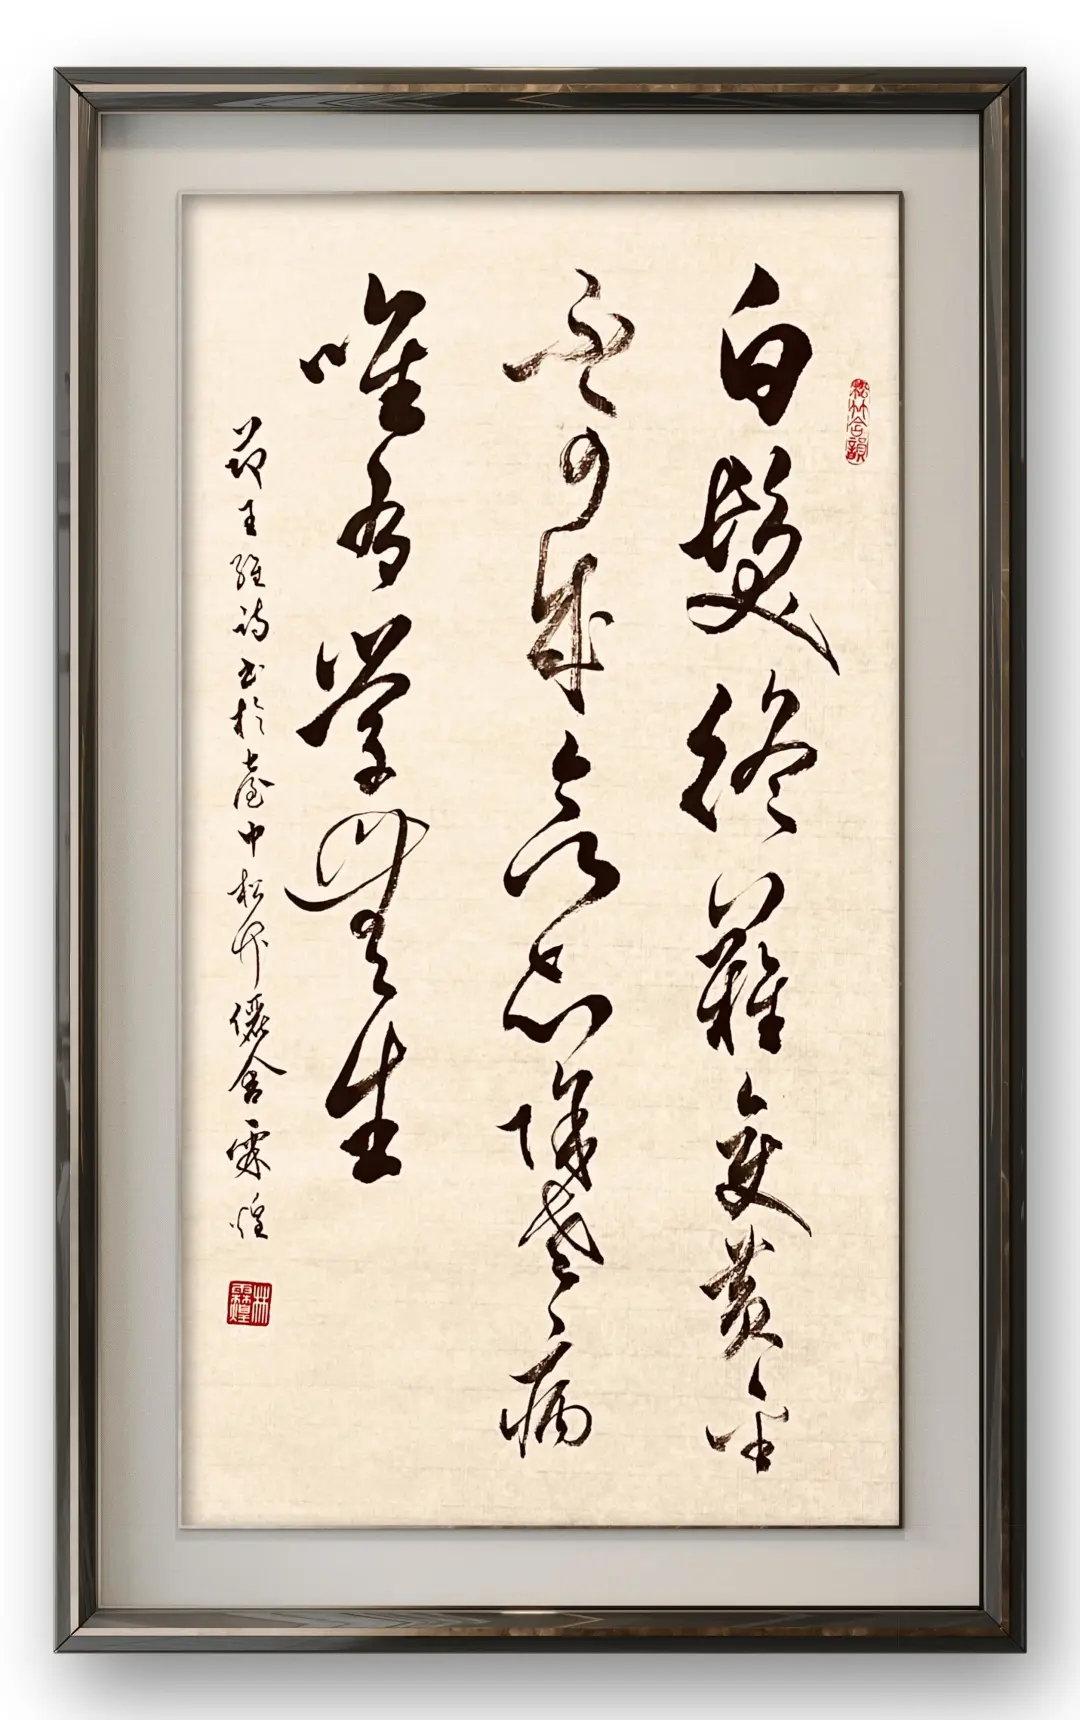 松竹含韻
白髮終難變黃金
不可成欲知除老病
唯有學無生
節王維詩書於臺中松竹儷舍霖煌
林霖煌